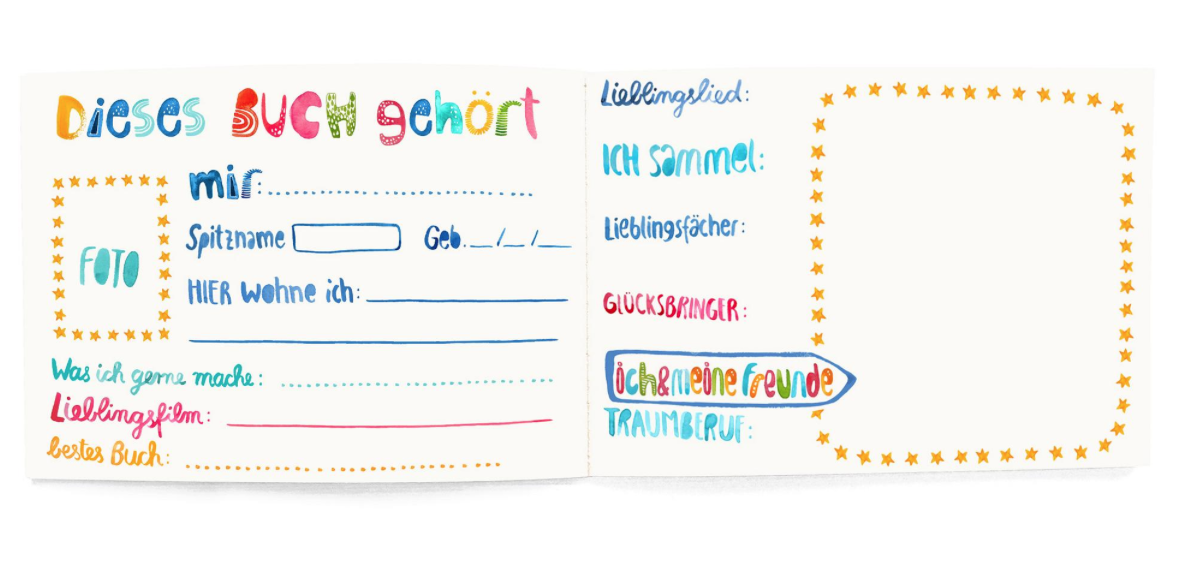 Dieses BUCH gehört
mir:
FOTO
Spitzname Geb. __/__/__
HIER wohne ich:
Was ich gerne mache:
Lieblingsfilm:
bestes Buch:
Lieblingslied:
ICH sammel:
Lieblingsfächer:
GLÜCKSBRINGER:
ich&meine Freunde
TRAUMBERUF: